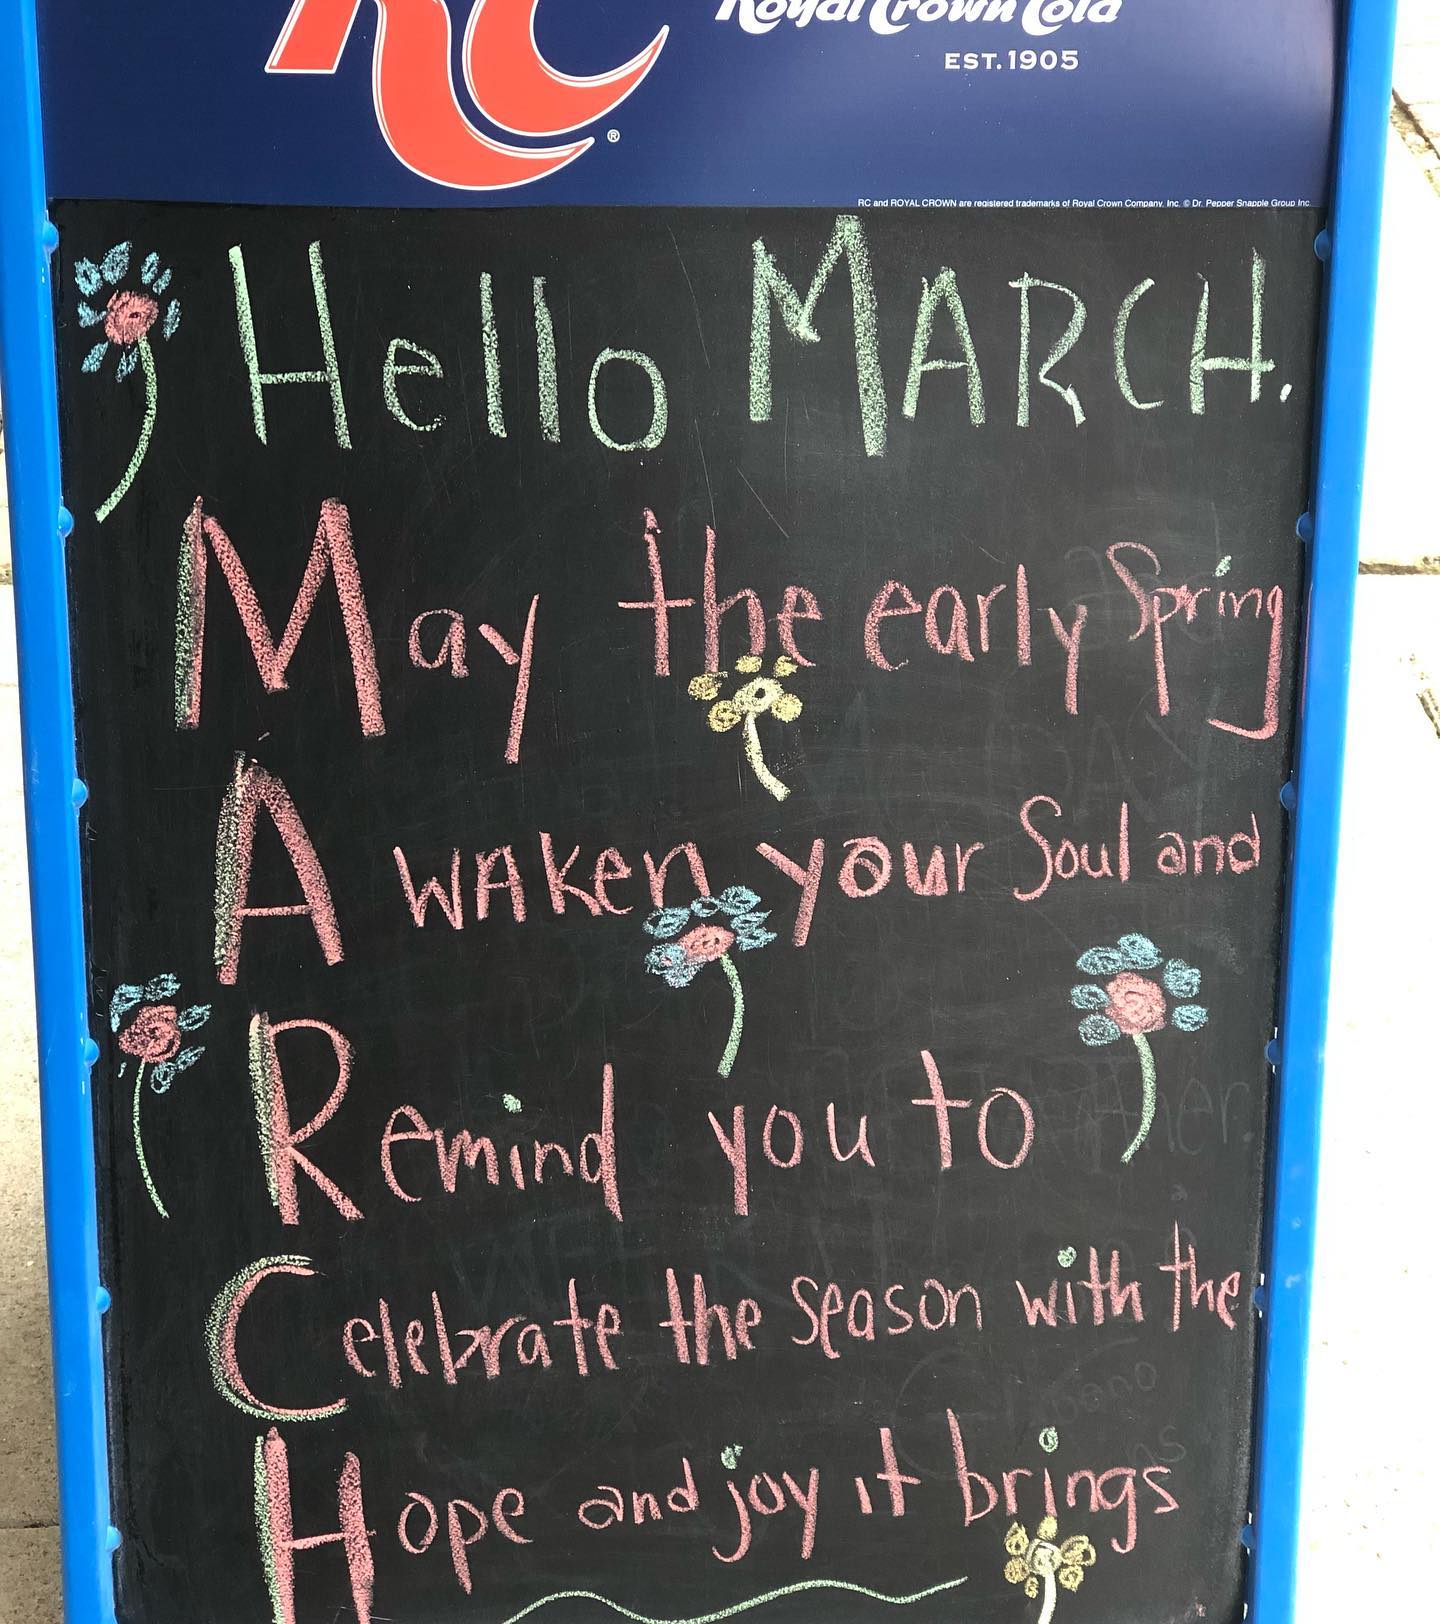 RC
Royal Crown Cola
EST. 1905
®
RC and ROYAL CROWN are registered trademarks of Royal Crown Company, Inc. © Dr. Pepper Snapple Group Inc.
Hello MARCH.
May the early Spring
Awaken your Soul and
Remind you to
Celebrate the season with the
Hope and joy it brings